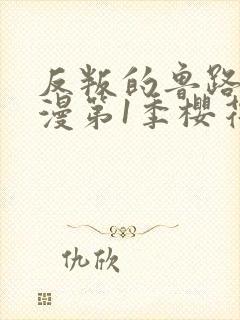 反叛的鲁路
漫第1季樱花
仇欣